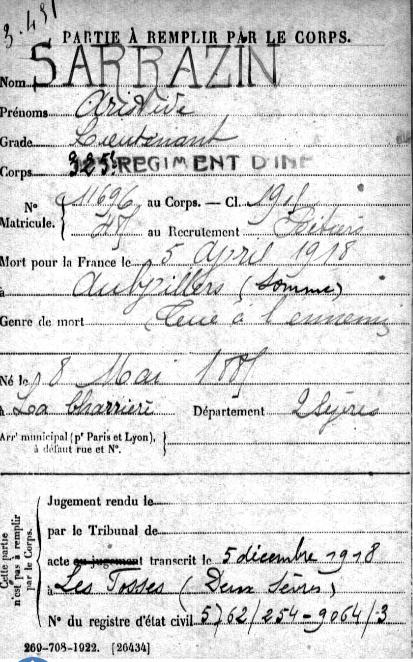 3.431
PARTIE À REMPLIR PAR LE CORPS.
Nom SARRAZIN
Prénoms Aristide
Grade Lieutenant
Corps 325e REGIMENT D'INF
N° 11696 au Corps. — Cl. 
Matricule. au Recrutement Poitiers
Mort pour la France le 5 April 1918
à Aubvillers (Somme)
Genre de mort Tué à l'ennemi
Né le 8 Mai
à La Charrière Département 2 Sèvres
Arrt municipal (pr Paris et Lyon), à défaut rue et N°.
Cette partie n'est pas à remplir par le Corps.
Jugement rendu le
par le Tribunal de
acte ou jugement transcrit le 5 décembre 1918
à Les Fosses (Deux Sèvres)
N° du registre d'état civil 5762/254-9064/3
269-708-1922. [26434]